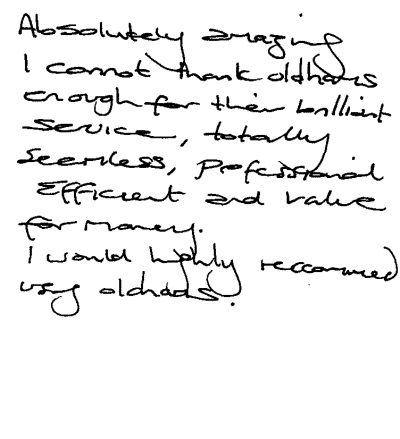 Absolutely amazing
I cannot thank oldhams
enough for their brilliant
service, totally
seemless, professional
Efficient and value
for money.
I would highly reccommed
using oldhams.